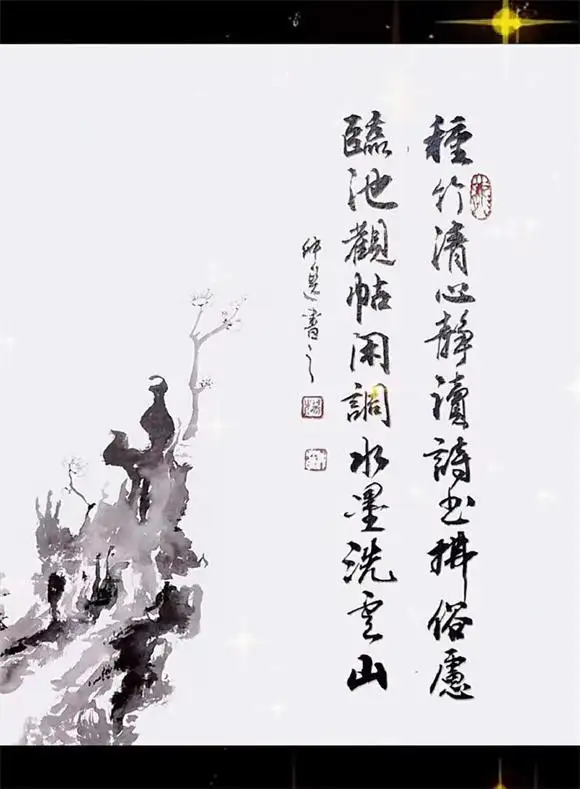 種竹清心靜讀詩书拂俗慮
臨池觀帖閑調水墨洗云山
書之